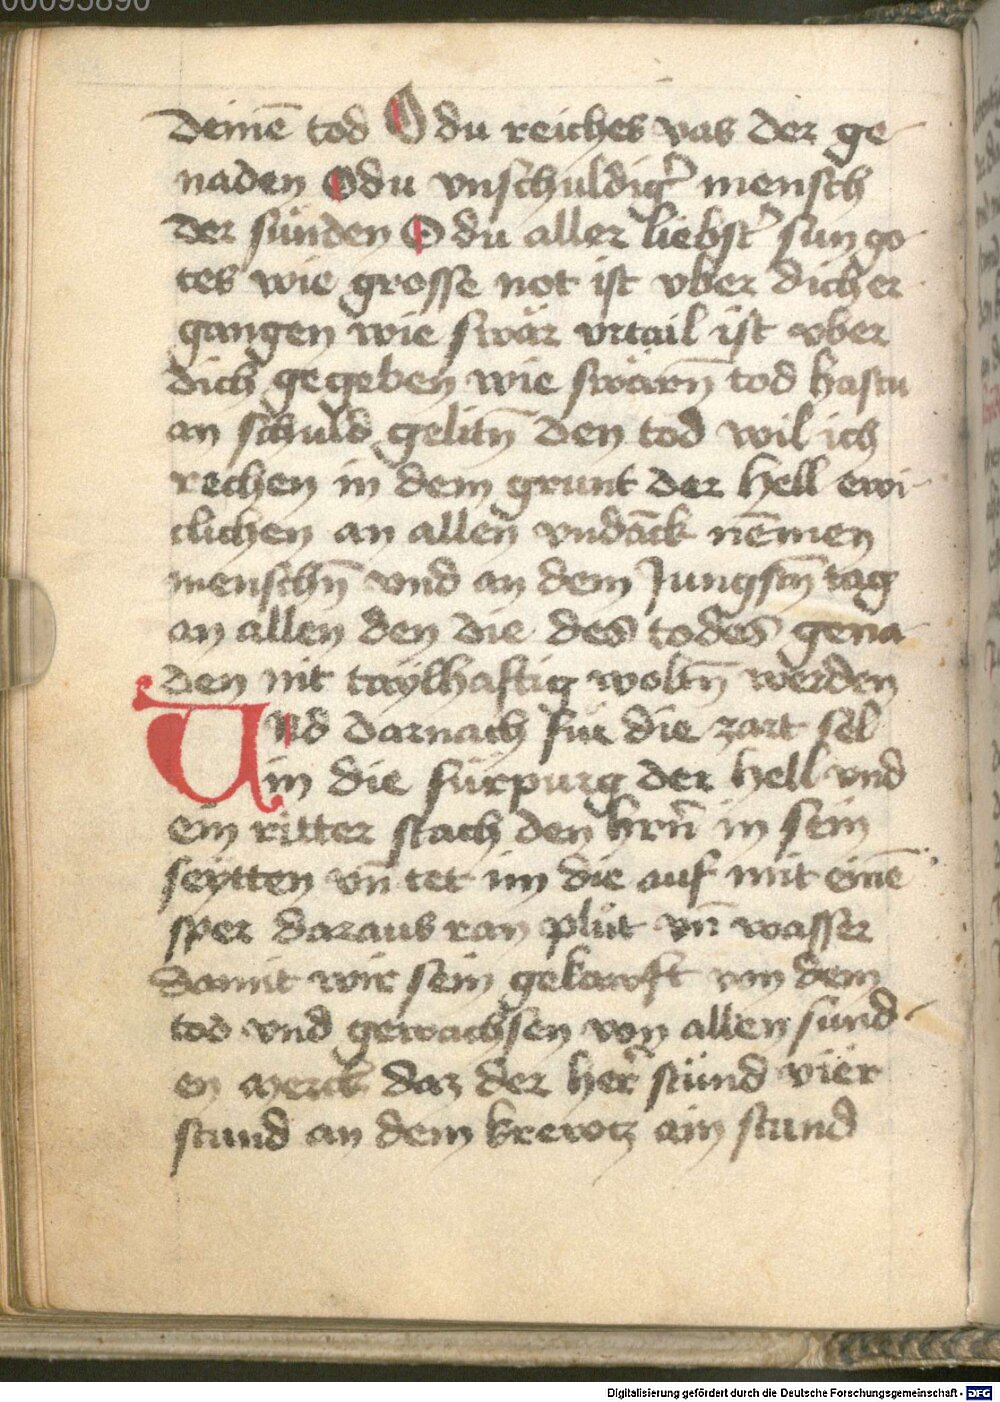 00095890
deinē tod O du reiches vas der ge-
naden O du vnschuldig͛ mensch
der sünden O du aller liebst͛ sun go-
tes wie grosse not ist vber dich er-
gangen wie swär vrtail ist vber
dich gegeben wie swärn̄ tod hastu
an schuld gelitn̄ den tod wil ich
rechen in dem grunt der hell ewi-
clichen an allen vndāck nēmen
menschn̄ vnd an dem Jungstn̄ tag
an allen den die des todes gena-
den nit taylhaftig woltn̄ werden
Vnd darnach für die zart sel
in die fürpurg der hell vnd
ein ritter stach den hrn̄ in sein
seytten vn̄ tet im die auf mit einē
sper daraus ran plůt vn̄ wasser
damit wir sein gekawft von dem
tod vnd gewachsen von allen sünd-
en merck daz der her͛ stůnd vier
stund an dem krewtz ain stund
Digitalisierung gefördert durch die Deutsche Forschungsgemeinschaft - DFG